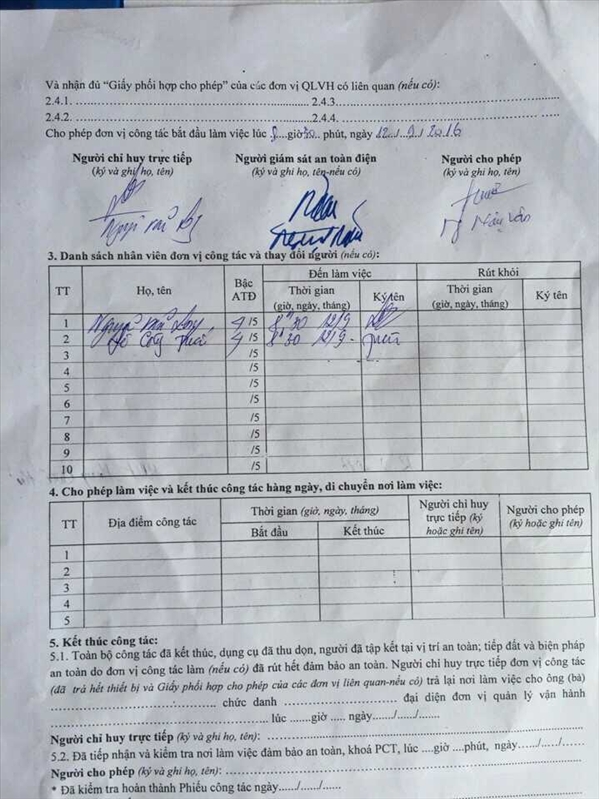 Và nhận đủ “Giấy phối hợp cho phép” của các đơn vị QLVH có liên quan (nếu có):
2.4.1. ........................................ 2.4.3........................................
2.4.2. ........................................ 2.4.4. ........................................
Cho phép đơn vị công tác bắt đầu làm việc lúc 8....giờ30.. phút, ngày 12.../...9./.2016
Người chỉ huy trực tiếp Người giám sát an toàn điện Người cho phép
(ký và ghi họ, tên) (ký và ghi họ, tên-nếu có) (ký và ghi họ, tên)
3. Danh sách nhân viên đơn vị công tác và thay đổi người (nếu có):
TT Họ, tên Bậc ATĐ Đến làm việc Rút khỏi
Thời gian (giờ, ngày, tháng) Ký tên Thời gian (giờ, ngày, tháng) Ký tên
1 4 /5 8h30 12/9
2 4 /5 8h30 12/9
3 /5
4 /5
5 /5
6 /5
7 /5
8 /5
9 /5
10 /5
4. Cho phép làm việc và kết thúc công tác hàng ngày, di chuyển nơi làm việc:
TT Địa điểm công tác Thời gian (giờ, ngày, tháng) Người chỉ huy trực tiếp (ký hoặc ghi tên) Người cho phép (ký hoặc ghi tên)
Bắt đầu Kết thúc
1
2
3
4
5
5. Kết thúc công tác:
5.1. Toàn bộ công tác đã kết thúc, dụng cụ đã thu dọn, người đã tập kết tại vị trí an toàn; tiếp đất và biện pháp
an toàn do đơn vị công tác làm (nếu có) đã rút hết đảm bảo an toàn. Người chỉ huy trực tiếp đơn vị công tác
(đã trả hết thiết bị và Giấy phối hợp cho phép của các đơn vị liên quan-nếu có) trả lại nơi làm việc cho ông (bà)
........................................ chức danh ........................ đại diện đơn vị quản lý vận hành
........................................ lúc .......giờ ..... ngày......./....../.......
Người chỉ huy trực tiếp (ký và ghi họ, tên): ........................................
5.2. Đã tiếp nhận và kiểm tra nơi làm việc đảm bảo an toàn, khoá PCT, lúc ....giờ ....phút, ngày....../...../......
Người cho phép (ký và ghi họ, tên): ........................................
* Đã kiểm tra hoàn thành Phiếu công tác ngày....../....../......